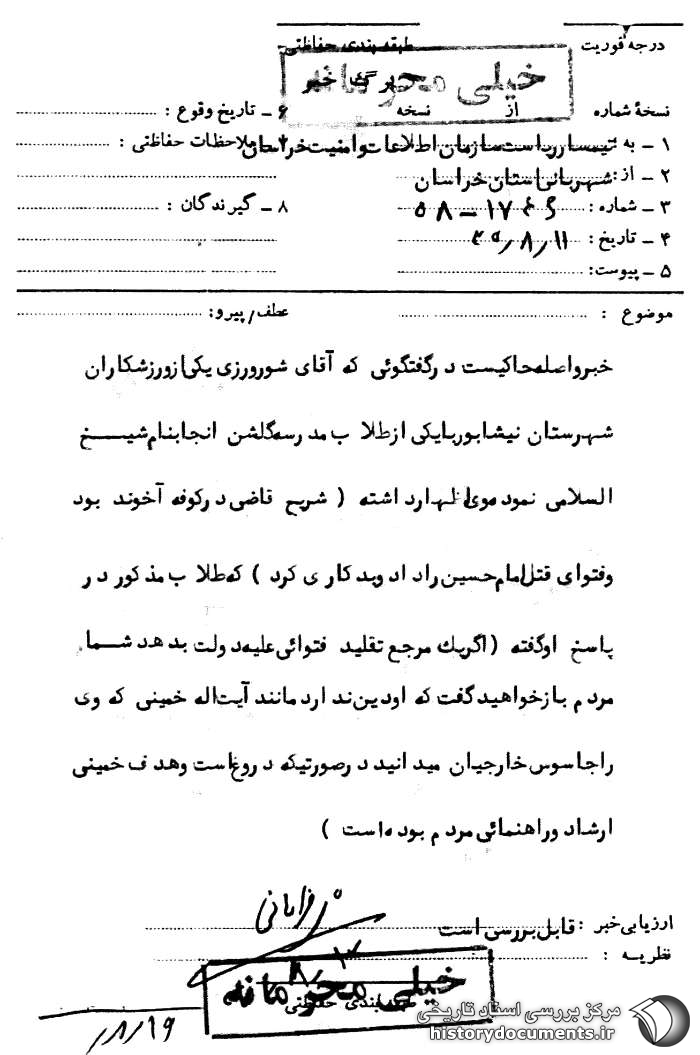 درجه فوریت
طبقه بندی حفاظتی
خیلی محرمانه
برگ خبر
نسخهٔ شماره از نسخه
۶ ـ تاریخ وقوع :
۱ ـ به : تیمسارریاست سازمان اطلاعات وامنیت خراسان
ملاحظات حفاظتی :
۲ ـ از : شهربانی استان خراسان
۳ ـ شماره :
۸ ـ گیرندگان :
۴ ـ تاریخ :
۵ ـ پیوست :
موضوع :
عطف/پیرو:
خبرواصله حاکیست درگفتگوئی که آقای شورورزی یکی ازورزشکاران
شهرستان نیشابوربایکی ازطلاب مدرسه گلشن انجابنام شیخ
السلامی نموده وی اظهارداشته ( شریح قاضی درکوفه آخوند بود
وفتوای قتل امام حسین راداد وبدکاری کرد ) که طلاب مذکوردر
پاسخ اوگفته (اگریک مرجع تقلید فتوائی علیه دولت بدهد شما
مردم بازخواهیدگفت که اودین ندارد مانند آیت اله خمینی که وی
راجاسوس خارجیان میدانید درصورتیکه دروغ است وهدف خمینی
ارشاد وراهنمائی مردم بوده است )
ارزیابی خبر : قابل بررسی است
نظریه :
خیلی محرمانه
طبقه بندی حفاظتی
۸/۱۶
مرکز بررسی اسناد تاریخی
historydocuments.ir